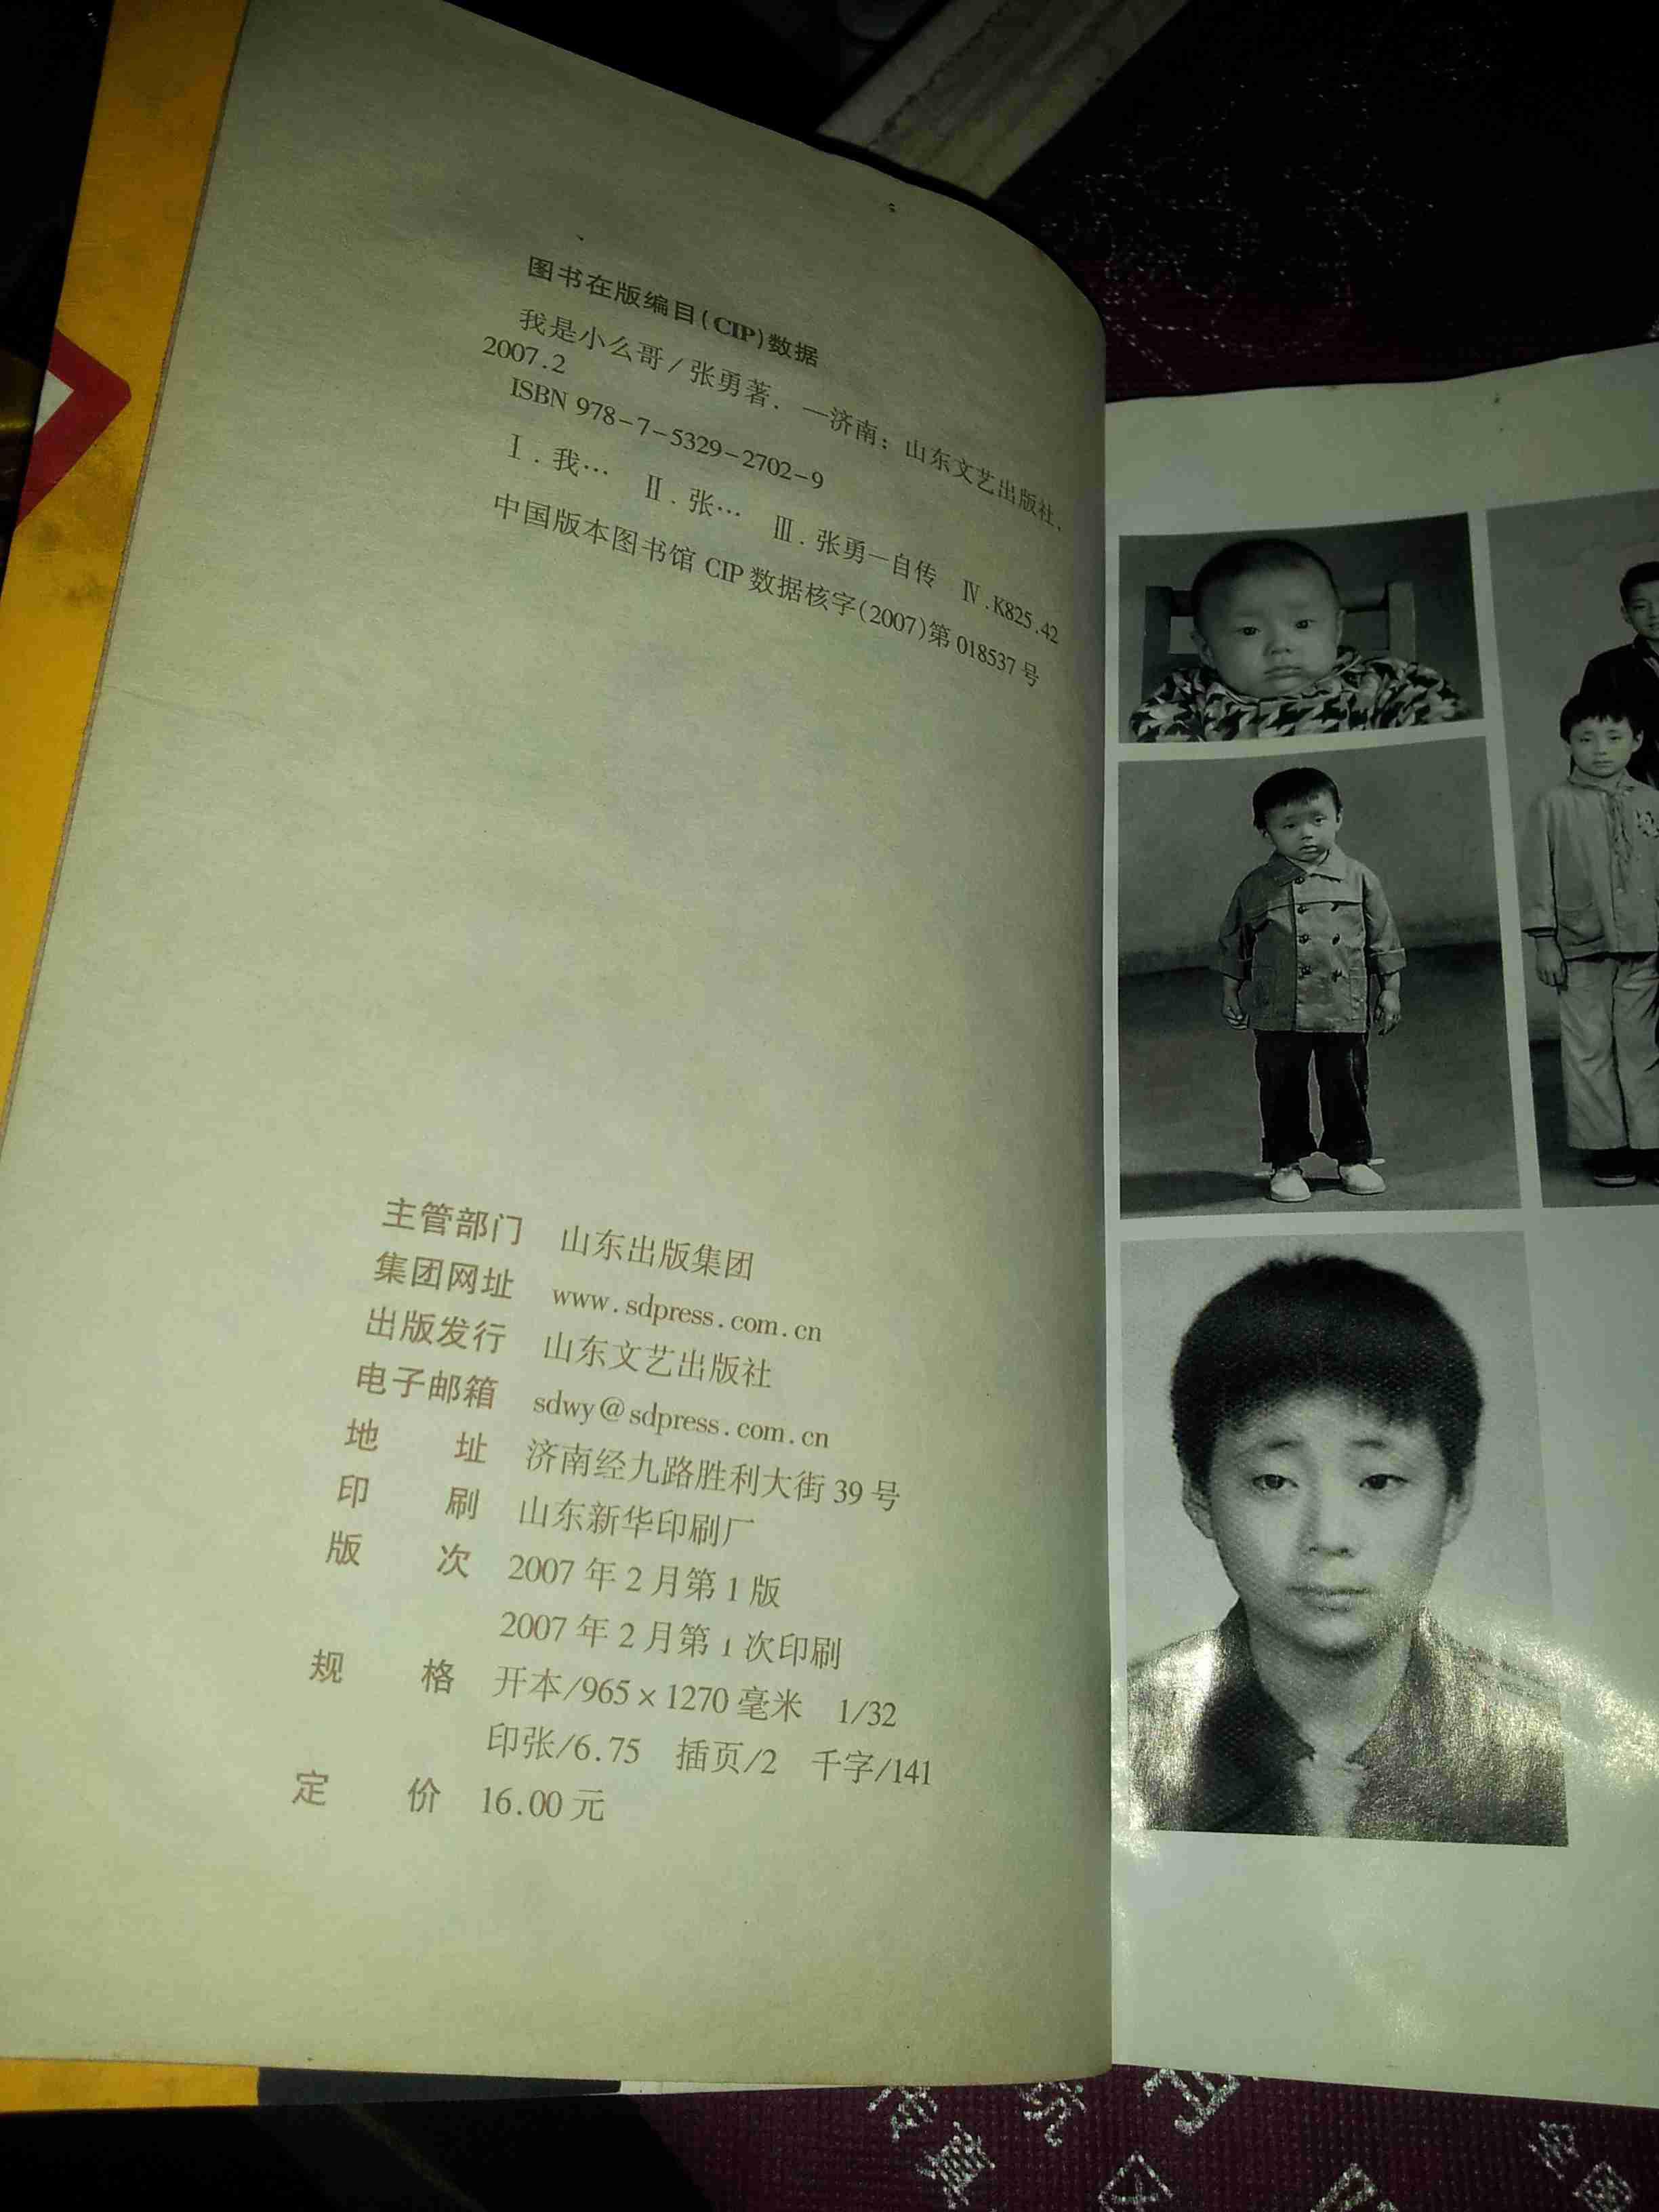 图书在版编目(CIP)数据
我是小么哥/张勇著. —济南：山东文艺出版社，
2007.2
ISBN 978-7-5329-2702-9
Ⅰ.我… Ⅱ.张… Ⅲ.张勇—自传 Ⅳ.K825.42
中国版本图书馆 CIP 数据核字(2007)第 018537 号
主管部门 山东出版集团
集团网址 www.sdpress.com.cn
出版发行 山东文艺出版社
电子邮箱 sdwy@sdpress.com.cn
地 址 济南经九路胜利大街 39 号
印 刷 山东新华印刷厂
版 次 2007 年 2 月第 1 版
2007 年 2 月第 1 次印刷
规 格 开本/965×1270 毫米 1/32
印张/6.75 插页/2 千字/141
定 价 16.00 元